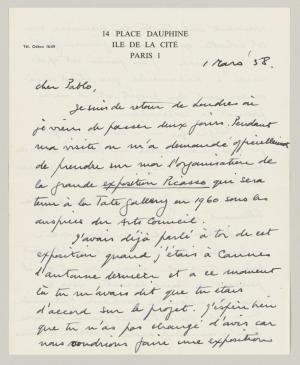 14 PLACE DAUPHINE
ILE DE LA CITÉ
PARIS 1
Tél. Odéon 16-09
1 Mars '58.
cher Pablo,
Je suis de retour de Londres où
je viens de passer deux jours. Pendant
ma visite on m'a demandé officiellement
de prendre sur moi l'organisation de
la grande exposition Picasso qui sera
tenue à la Tate Gallery en 1960 sous les
auspices du Arts Council.
J'avais déjà parlé à toi de cet
exposition quand j'étais à Cannes
l'automne dernière et a ce moment
là tu m'avais dit que tu étais
d'accord sur le projet. J'espère bien
que tu n'as pas changé d'avis car
nous voudrions faire une exposition